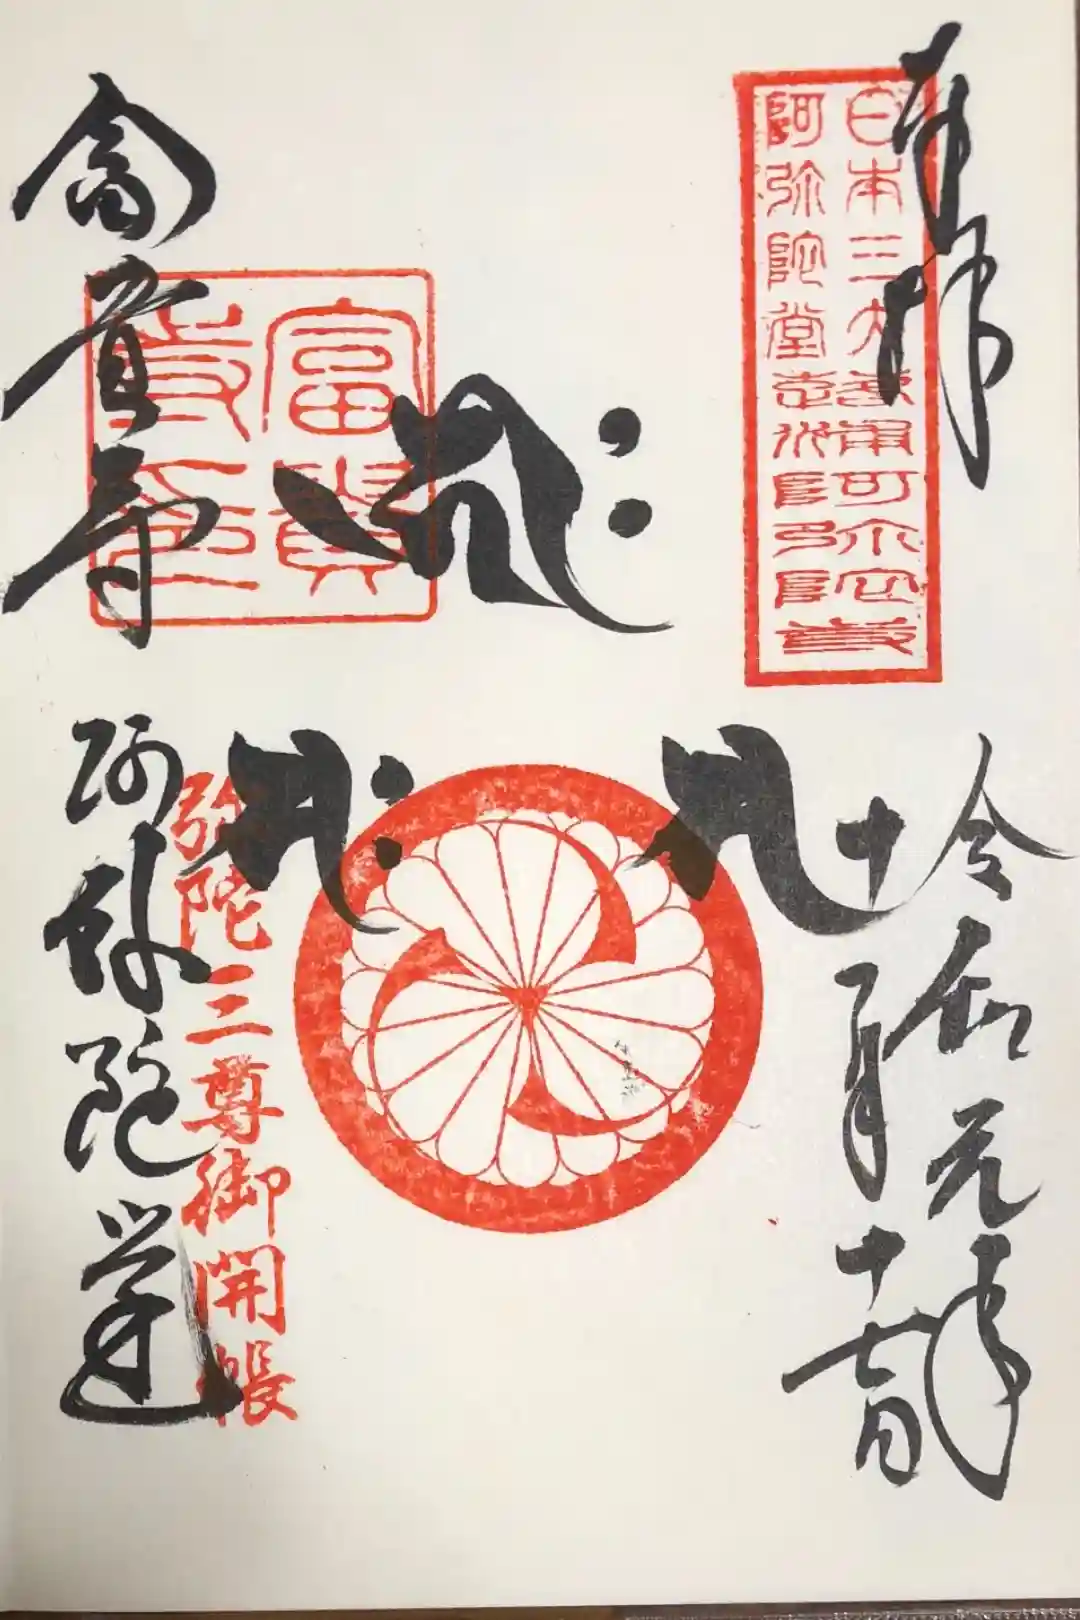 奉拝
日本三大
阿弥陀堂
令和元年
十一月十七日
富貴
寺印
弥陀三尊御開帳
富貴寺
阿弥陀堂